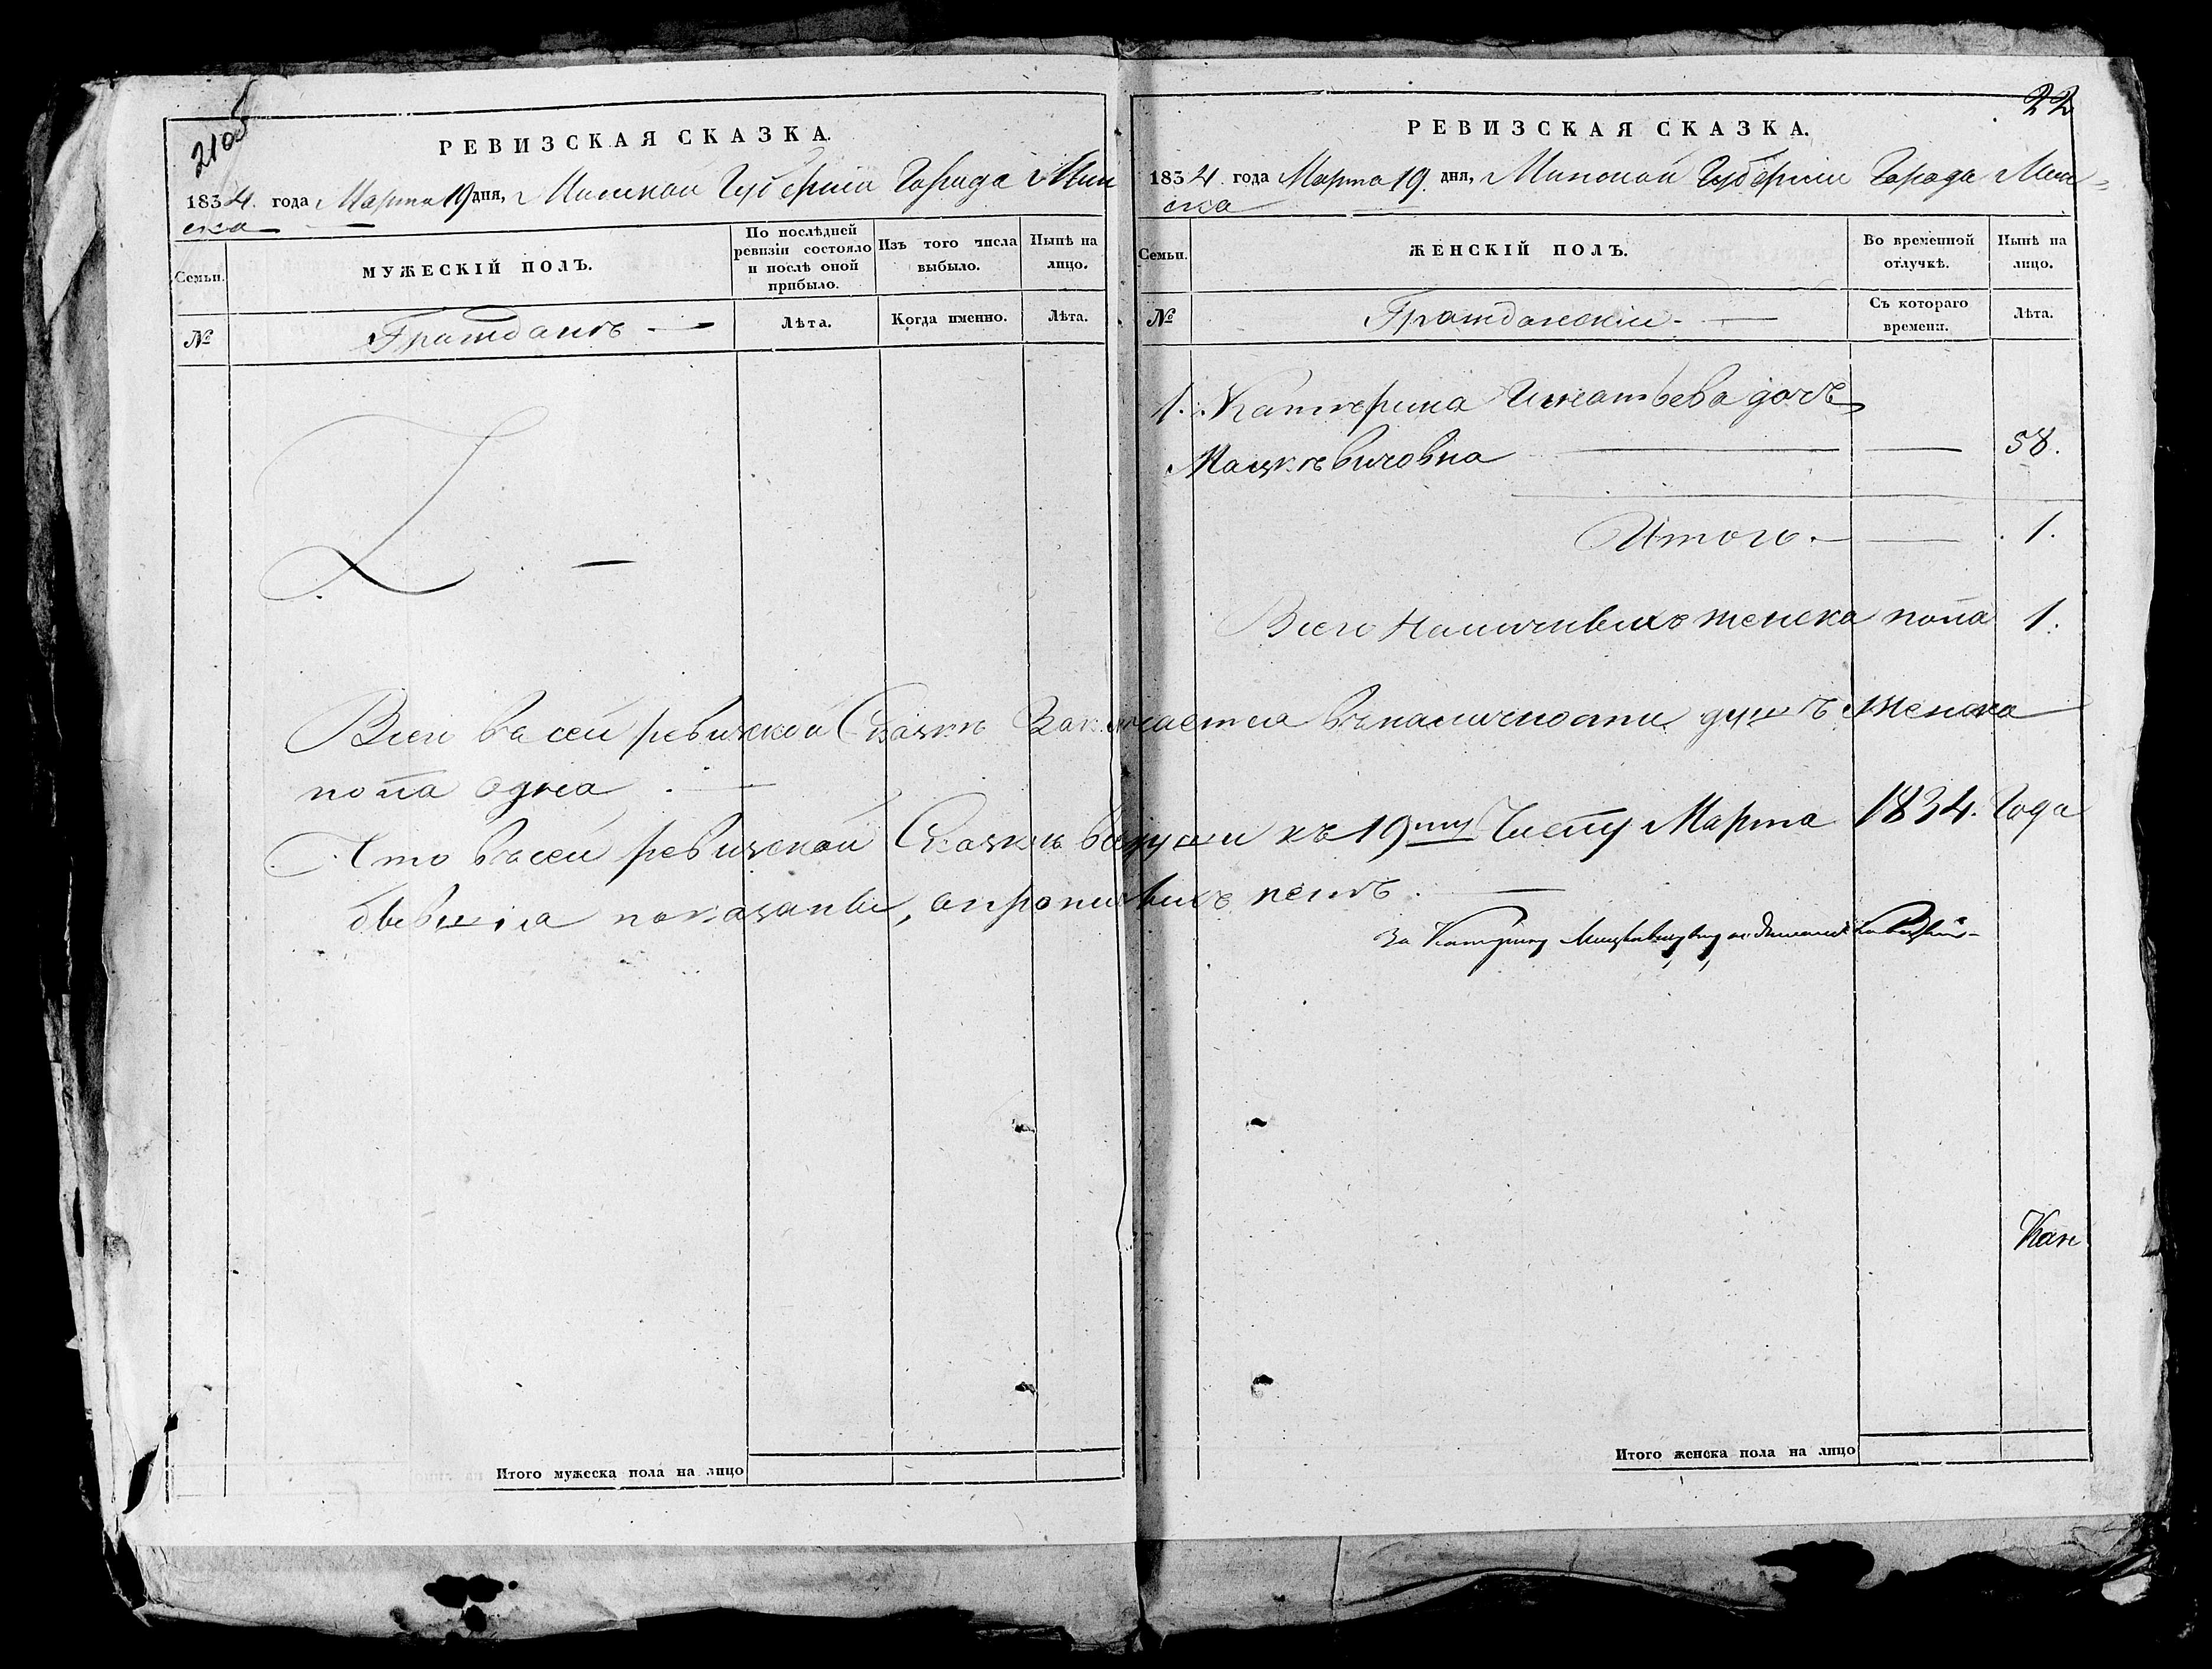 2105
РЕВИЗСКАЯ СКАЗКА.
1834. года Марта 19 дня, Минской Губерніи Города Мин
ска
Семьи.
МУЖЕСКІЙ ПОЛЪ.
По послѣдней
ревизіи состояло
и послѣ оной
прибыло.
Изъ того числа
выбыло.
Нынѣ на
лицо.
№
Гражданъ
Лѣта.
Когда именно.
Лѣта.
22
РЕВИЗСКАЯ СКАЗКА.
1834. года Марта 19. дня, Минской Губерніи Города Мин=
ска
Семьи.
ЖЕНСКІЙ ПОЛЪ.
Во временной
отлучкѣ.
Нынѣ на
лицо.
№
Гражданскіи
Съ котораго
времени.
Лѣта.
1. Катерина Игнатьева дочь
Мацкѣвичовна 58.
Итого. 1.
Всего Наличныхъ женска пола 1.
Всего въ сей ревизской Сказкѣ Заключается въ наличности душъ женска
пола одна
Что въ сей ревизской Сказкѣ всѣ души къ 19му Числу Марта 1834. Года
бывшіа показаны, а прописныхъ нетъ.
За Катерину
Кан
Итого мужеска пола на лицо
Итого женска пола на лицо